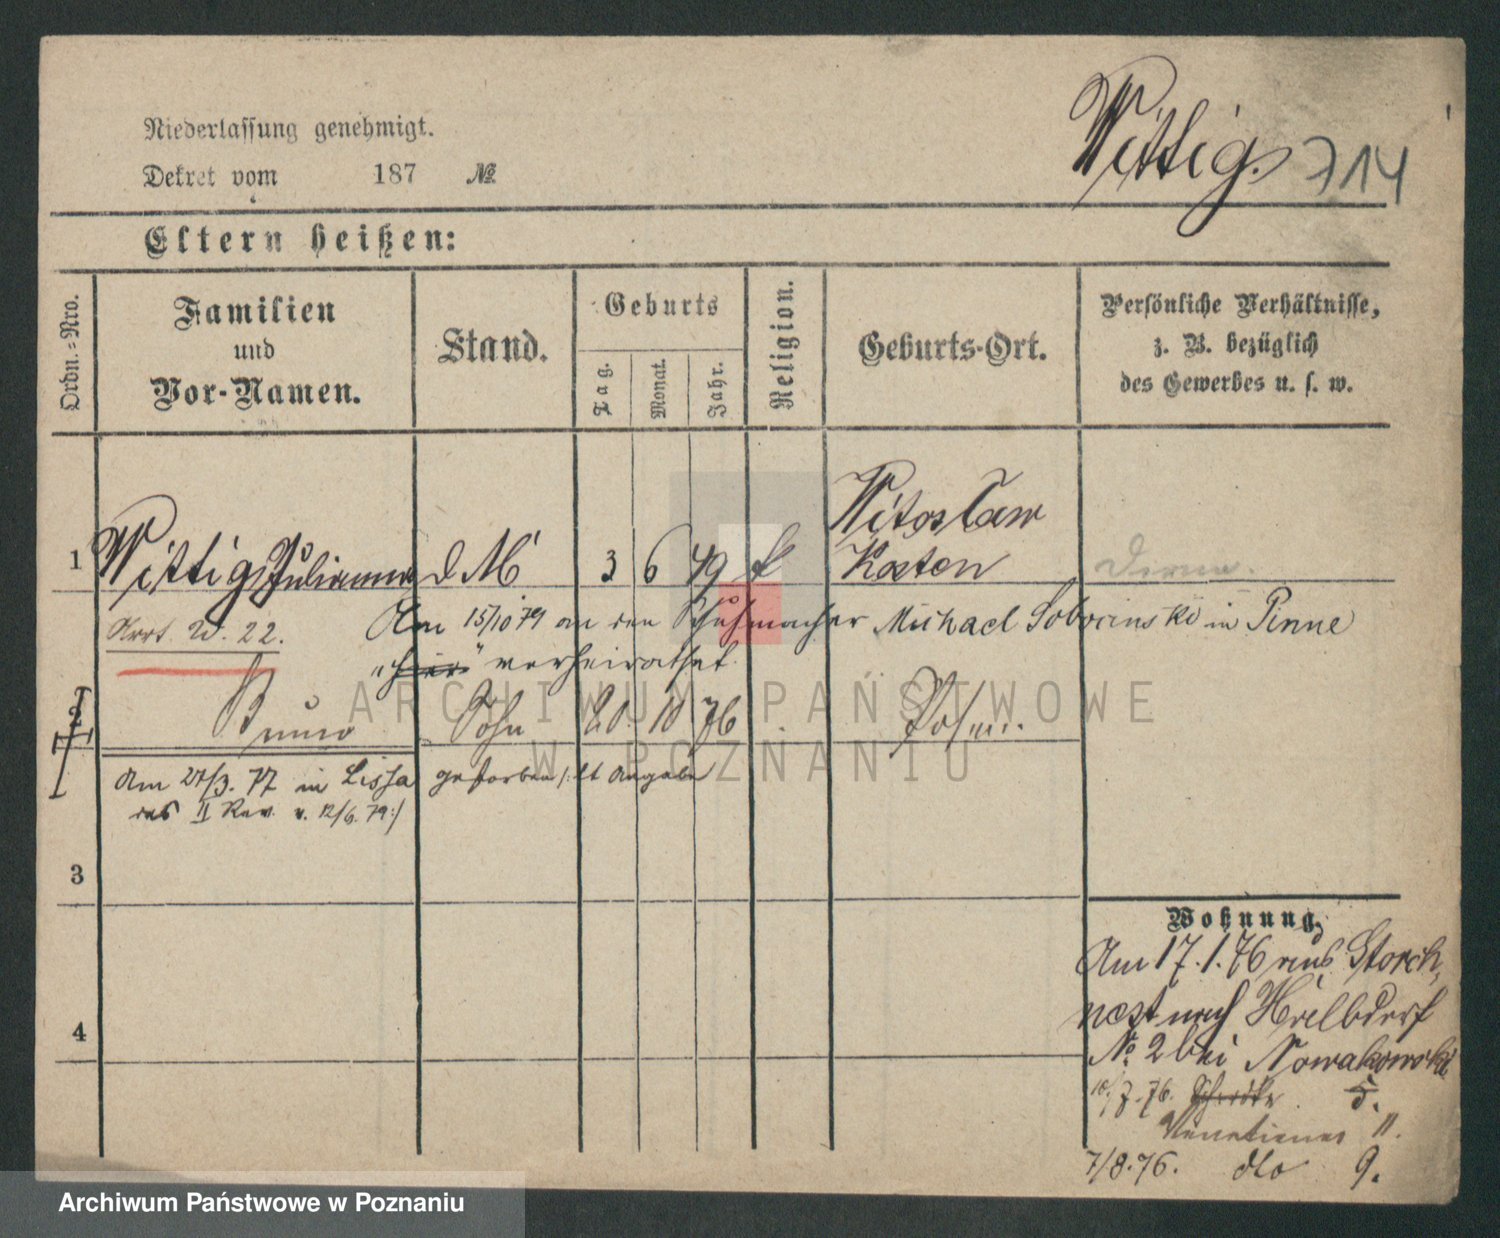 Niederlassung genehmigt.
Dekret vom 187 №
Wittig. 714
Eltern heißen:
Ordn.-Nro.
Familien und Vor-Namen.
Stand.
Geburts
Tag.
Monat.
Jahr.
Religion.
Geburts-Ort.
Persönliche Verhältnisse,
z. B. bezüglich
des Gewerbes u. s. w.
Witosław
1 Wittig Julianna d M 3 6 49 k Kosten Dirne.
W. 22. Am 15/10 79 an den Schuhmacher Michael in Pinne
"hier" verheirathet.
2 Bruno Sohn 20. 10 76 Posen.
Am 27/3. 77 in Lissa gestorben /: lt Angabe
des II Rev. v. 12/6. 79 :/
3
4
Wohnung.
Am 17. 1. 76 aus Storch-
nest nach
№ 2 bei Nowakowski
10/7. 76. Schrodka 5.
Venetianer 11.
7/8. 76. dto 9.
ARCHIWUM PAŃSTWOWE
W POZNANIU
Archiwum Państwowe w Poznaniu